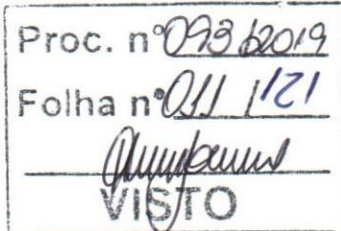 Proc. nº 093/2019
Folha nº 011 / 121
VISTO